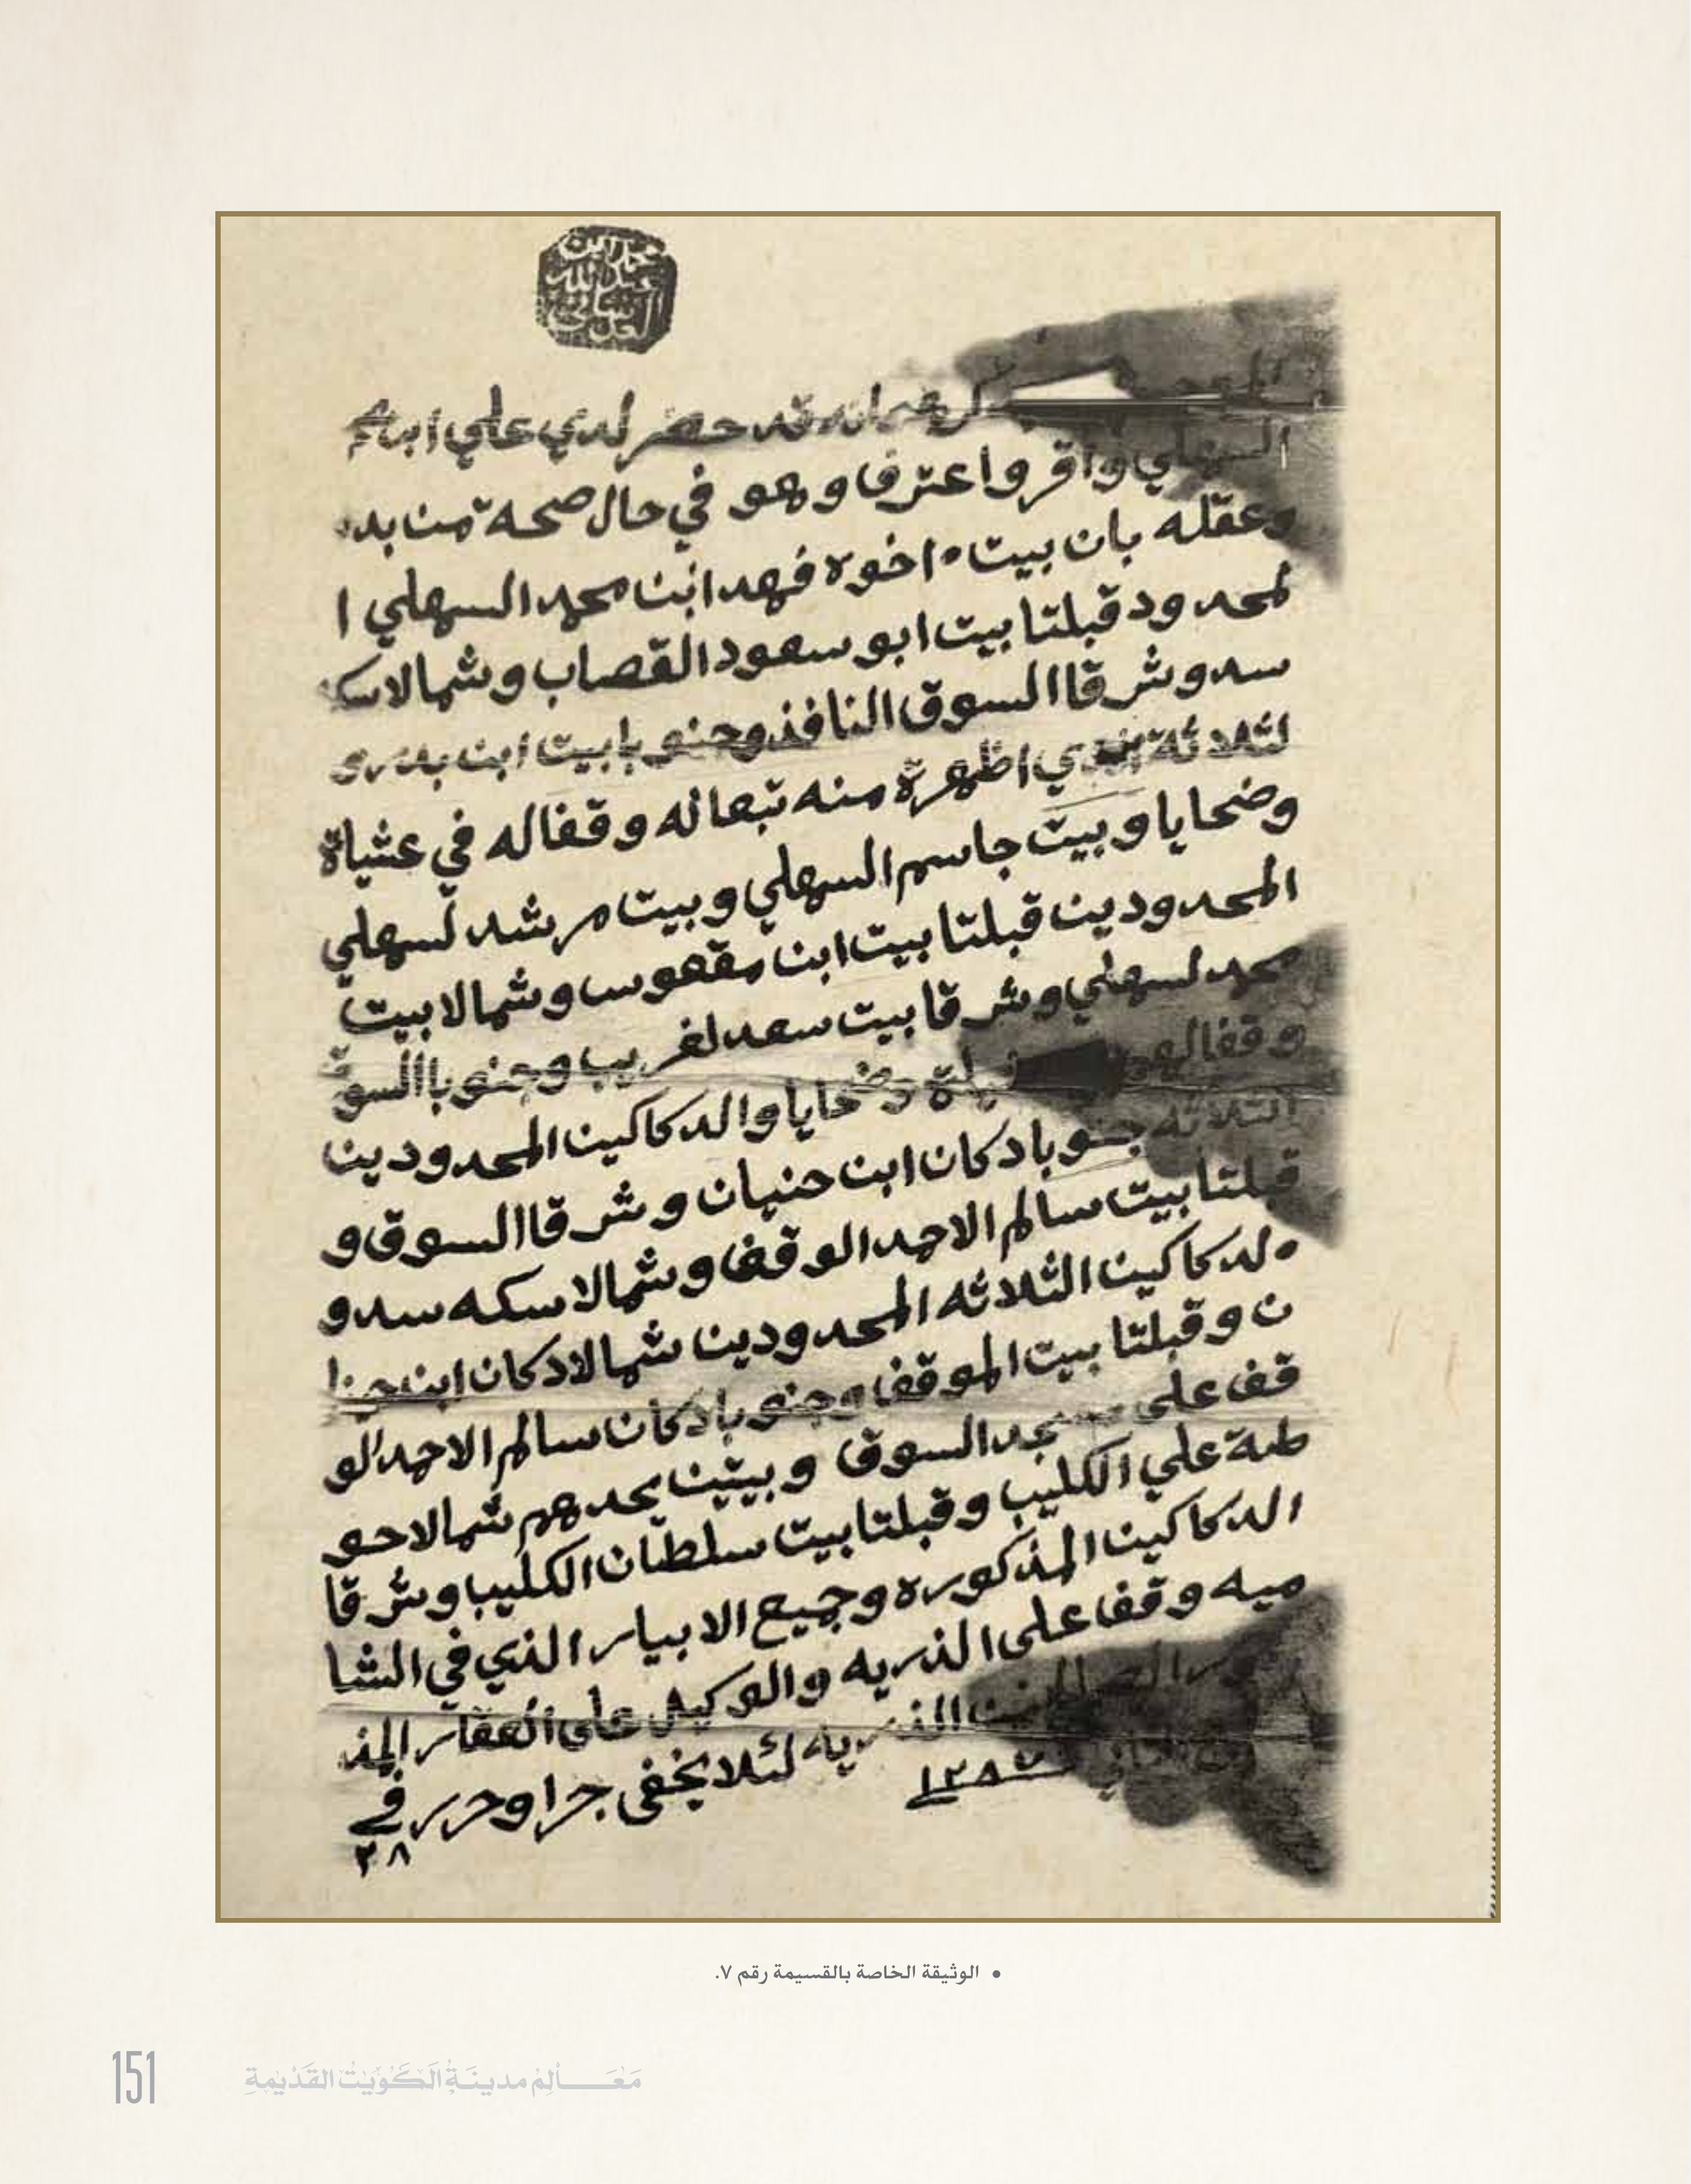 محمد ابن
عبد الله
العدساني
قد حضر لدي علي ابن محمد
السهلي واقر واعترف وهو في حال صحه من بدنه
وعقله بان بيت اخوه فهد ابن محمد السهلي ا
لمحدود قبلتا بيت ابو سعود القصاب وشمالا سكه
سد وشرقا السوق النافذ وجنوبا بيت ابن بدر وا
لثلاثة الذي اظهرة منه تبعا له وقفا له في عشياة
وضحايا وبيت جاسم السهلي وبيت مرشد لسهلي
المحدودين قبلتا بيت ابن مقهوس وشمالا بيت
محمد لسهلي وشرقا بيت سعد لغريب وجنوبا السوق
وقفا لهم وضحايا والدكاكين المحدودين
الثلاثه جنوبا دكان ابن حنيان وشرقا السوق و
قبلتا بيت سالم الاحمد الوقف وشمالا سكه سد و
لدكاكين الثلاثه المحدودين شمالا دكان ابن حنيا
ن وقبلتا بيت الموقف وجنوبا دكان سالم الاحمد لو
قف على مسجد السوق وبيتين يحدهم شمالا حو
طة علي الكليب وقبلتا بيت سلطان الكليب وشرقا
الدكاكين المذكوره وجميع الابيار الذي في الشا
ميه وقفا على الذريه والوكيل على العقار المذ
كور الصالح من الذريه لئلا يخفى جرا وحرر في
٢٨ ١٢٨٧
• الوثيقة الخاصة بالقسيمة رقم ٧.
151
مَعَــالِم مدينَةُ الكُوَيْت القَدْيمةِ